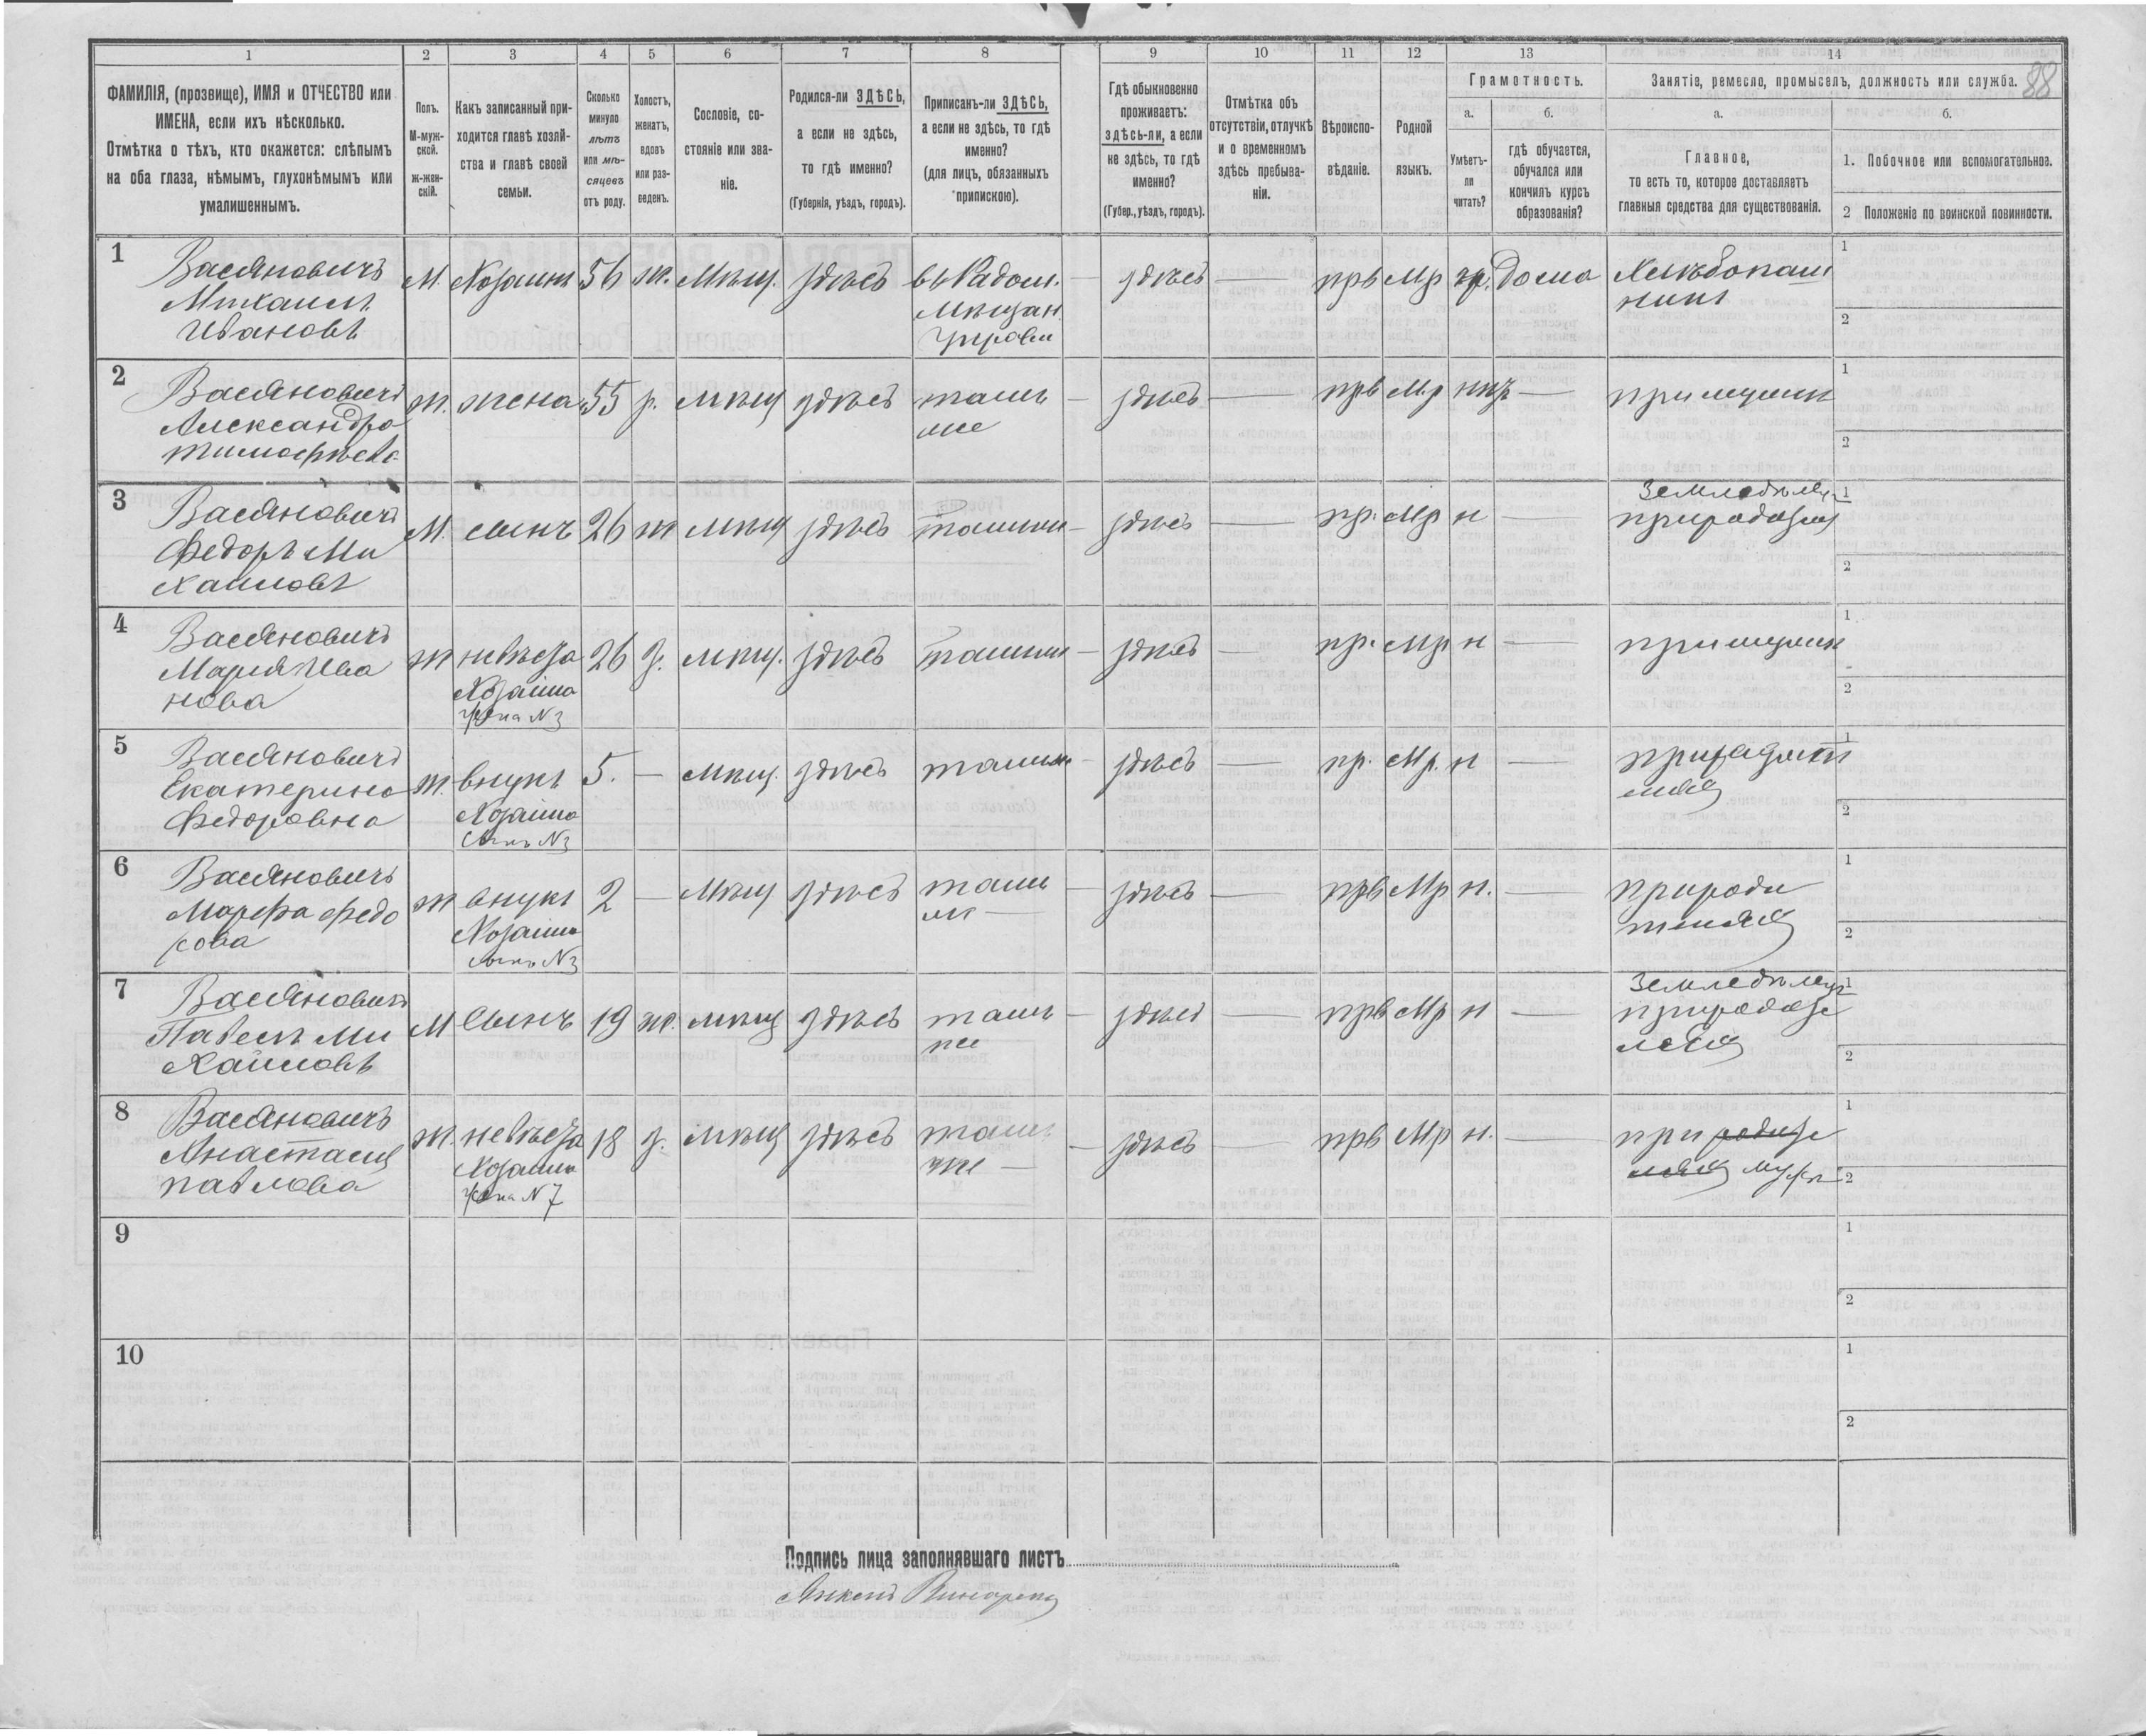 1
2
3
4
5
6
7
8
9
10
11
12
13
14
88
ФАМИЛІЯ, (прозвище), ИМЯ и ОТЧЕСТВО или
ИМЕНА, если ихъ нѣсколько.
Отмѣтка о тѣхъ, кто окажется: слѣпымъ
на оба глаза, нѣмымъ, глухонѣмымъ или
умалишеннымъ.
Полъ.
М-муж-
ской.
ж-жен-
скій.
Какъ записанный при-
ходится главѣ хозяй-
ства и главѣ своей
семьи.
Сколько
минуло
лѣтъ
или мѣ-
сяцевъ
отъ роду.
Холостъ,
женатъ,
вдовъ
или раз-
веденъ.
Сословіе, со-
стояніе или зва-
ніе.
Родился-ли ЗДѢСЬ,
а если не здѣсь,
то гдѣ именно?
(Губернія, уѣздъ, городъ).
Приписанъ-ли ЗДѢСЬ,
а если не здѣсь, то гдѣ
именно?
(для лицъ, обязанныхъ
припискою).
Гдѣ обыкновенно
проживаетъ:
здѣсь-ли, а если
не здѣсь, то гдѣ
именно?
(Губер., уѣздъ, городъ).
Отмѣтка объ
отсутствіи, отлучкѣ
и о временномъ
здѣсь пребыва-
ніи.
Вѣроиспо-
вѣданіе.
Родной
языкъ.
Грамотность.
а.
Умѣетъ-
ли
читать?
б.
гдѣ обучается,
обучался или
кончилъ курсъ
образованія?
Занятіе, ремесло, промыселъ, должность или служба.
а.
Главное,
то есть то, которое доставляетъ
главныя средства для существованія.
б.
1. Побочное или вспомогательное.
2 Положеніе по воинской повинности.
1 Васяновичъ М. Хозяинъ 56 ж. Мѣщ. здѣсь въ Радом. — здѣсь — прв Мр гр. Дома Хлѣбопаш 1
Михаилъ Мѣщан. никъ
Ивановъ Управы 2
2 Васяновичъ ж. жена 55 з. мѣщ здѣсь тамъ — здѣсь — прв М.р нгр — при мужѣ 1
Александра же
Тимофѣева 2
3 Васяновичъ М. сынъ 26 ж мѣщ здѣсь тамже — здѣсь — пр. Мр н — Земледѣлец 1
Федоръ Ми
хаиловъ 2
4 Васяновичъ ж невѣста 26 з. мѣщ. здѣсь тамже — здѣсь — пр. Мр н — при мужѣ 1
Мария Ива Хозяина
нова жена №3 2
5 Васяновичъ ж. внука 5. — мѣщ. здѣсь тамже — здѣсь — пр. Мр. н — 1
Екатерина Хозяина
Федоровна Сынъ №3 2
6 Васяновичъ ж внука 2 — Мѣщ здѣсь тамъ — здѣсь — прв Мр н. — при роди 1
Марфа Федо Хозяина же — теляхъ
рова сынъ №3 2
7 Васяновичъ М Сынъ 19 ж. мѣщ здѣсь тамъ — здѣсь — прв Мр н — Земледѣлец 1
Павелъ Ми же
хаиловъ 2
8 Васяновичъ ж. невѣста 18 з. мѣщ здѣсь тамъ — здѣсь — прв Мр н. — при 1
Анастасия Хозяина же — мужѣ 2
Павлова жена №7
9
1
2
10
1
2
Подпись лица заполнявшаго листъ